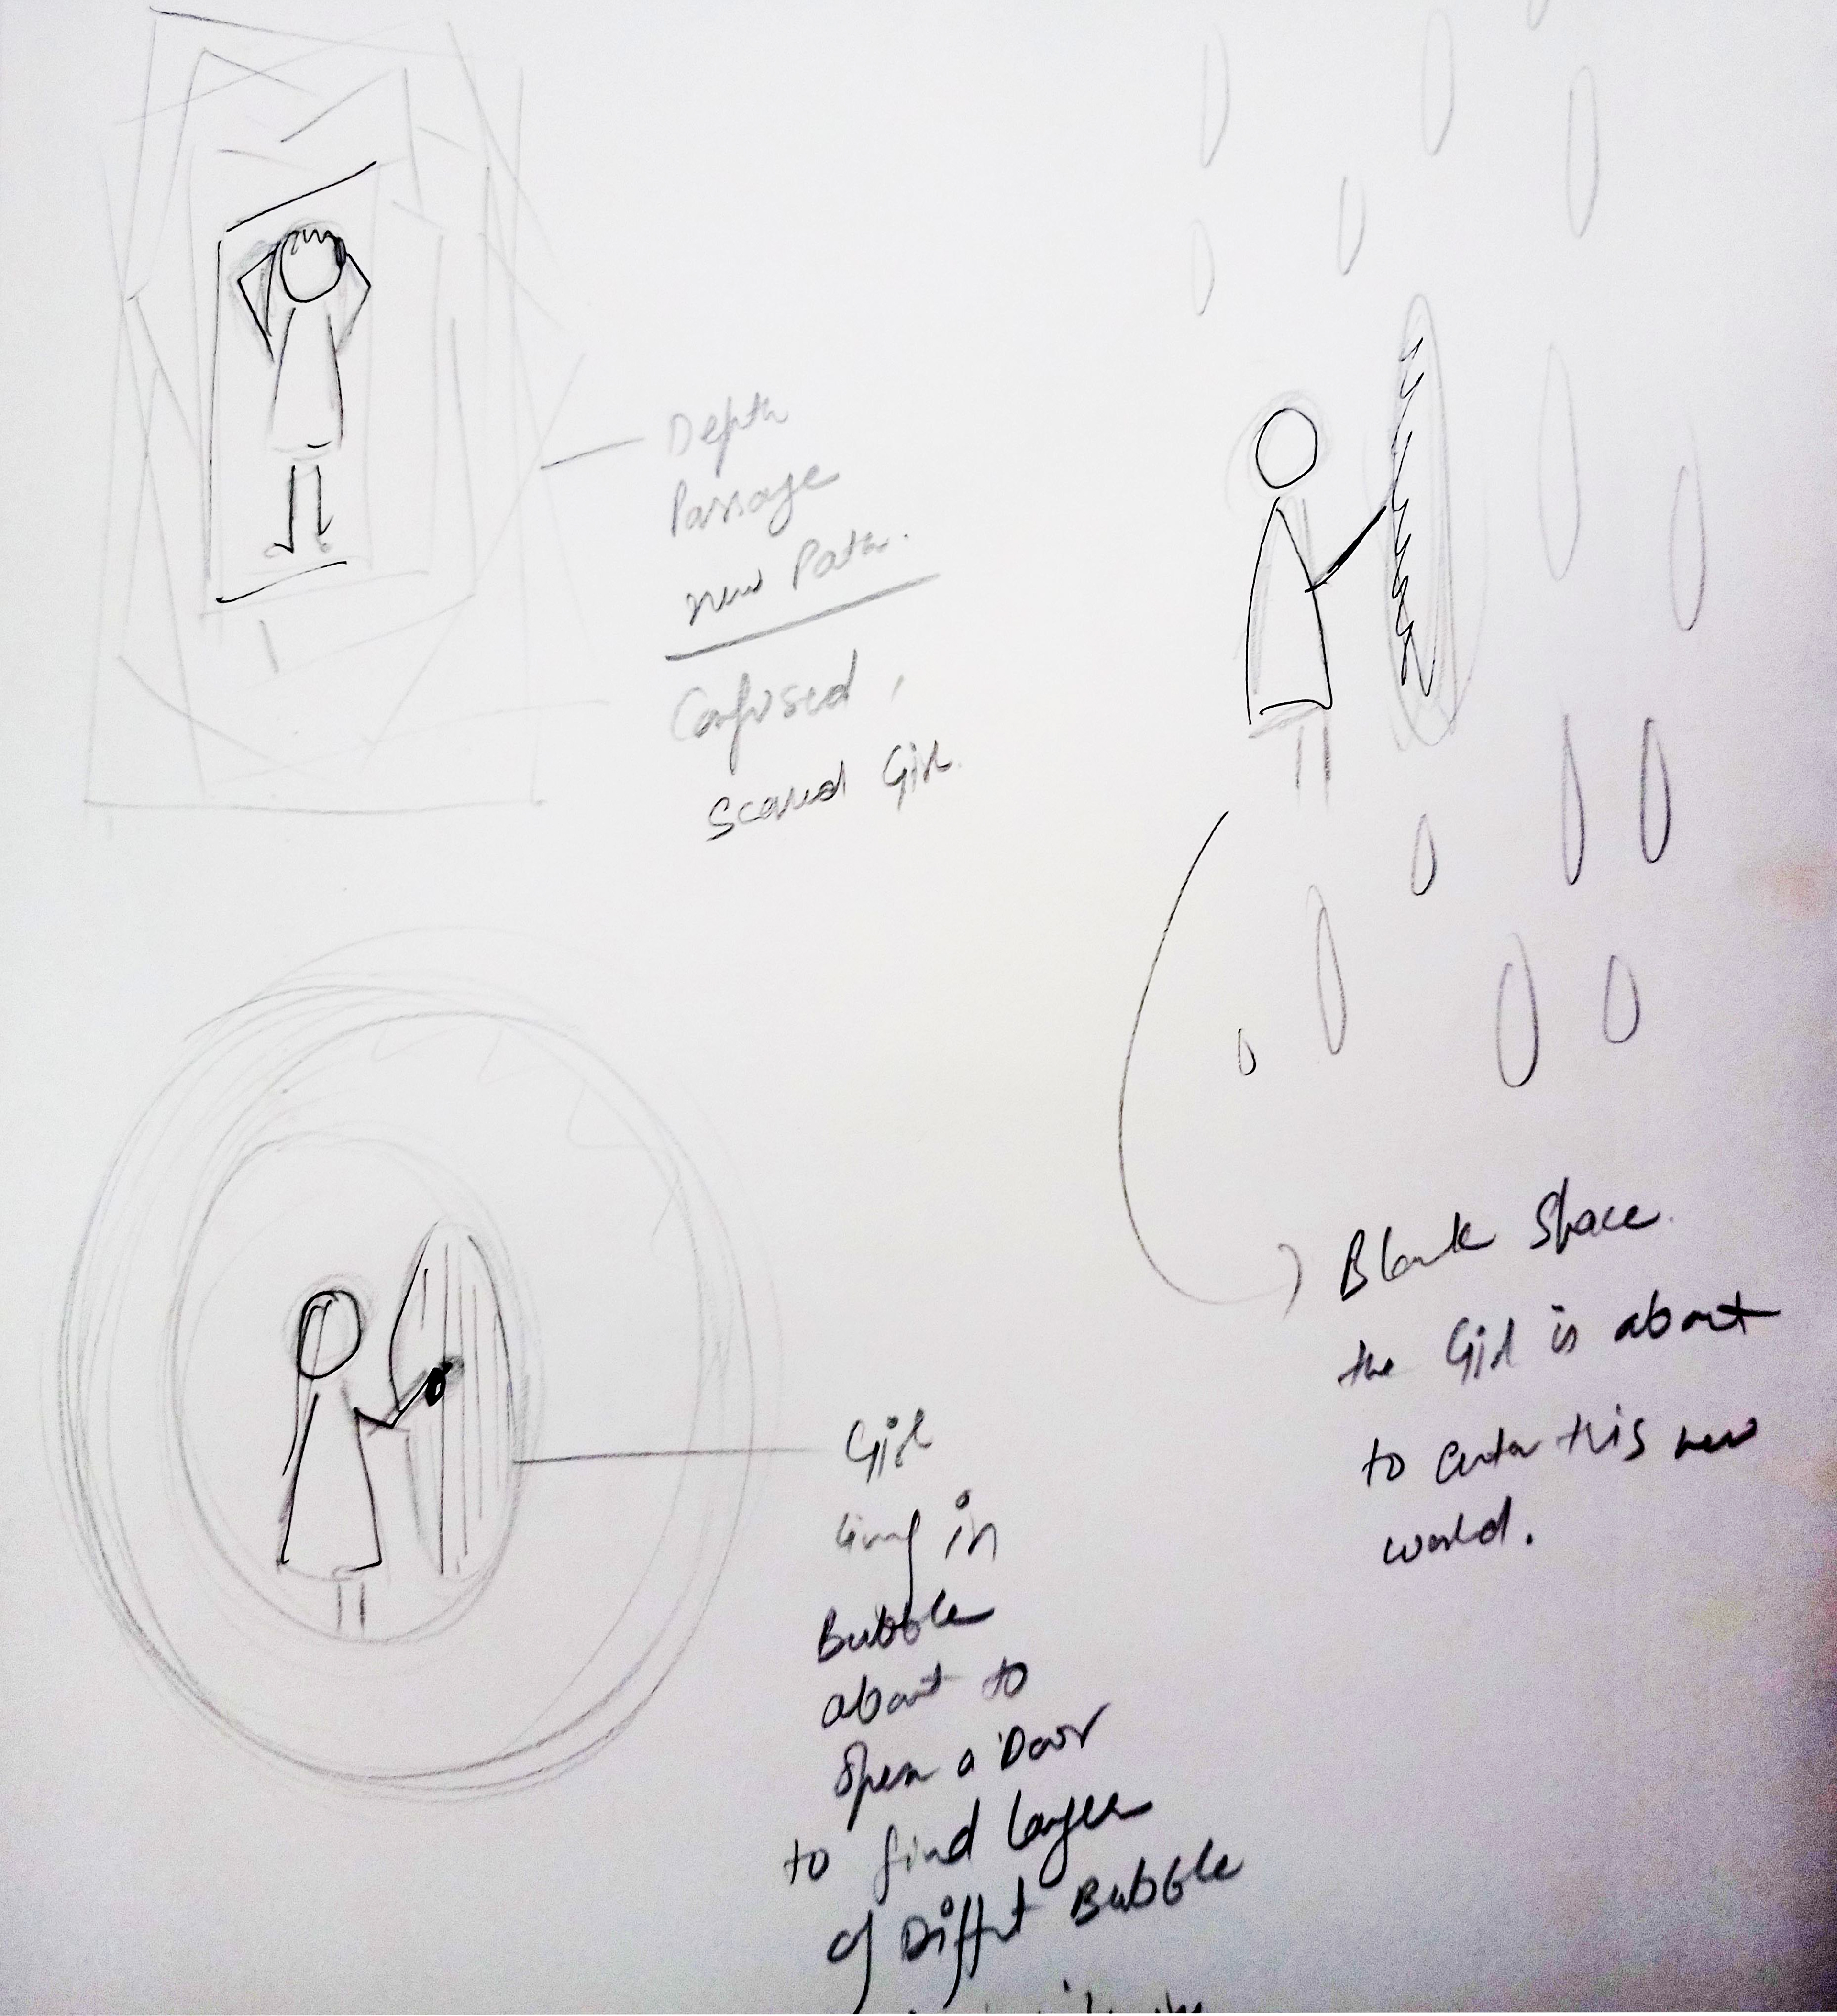 Depth
Passage
new Path.
Confused,
Scared Girl.
Blank Space.
the Girl is about
to enter this new
world.
Girl
living in
Bubble
about to
open a Door
to find layer
of Diffrt Bubble